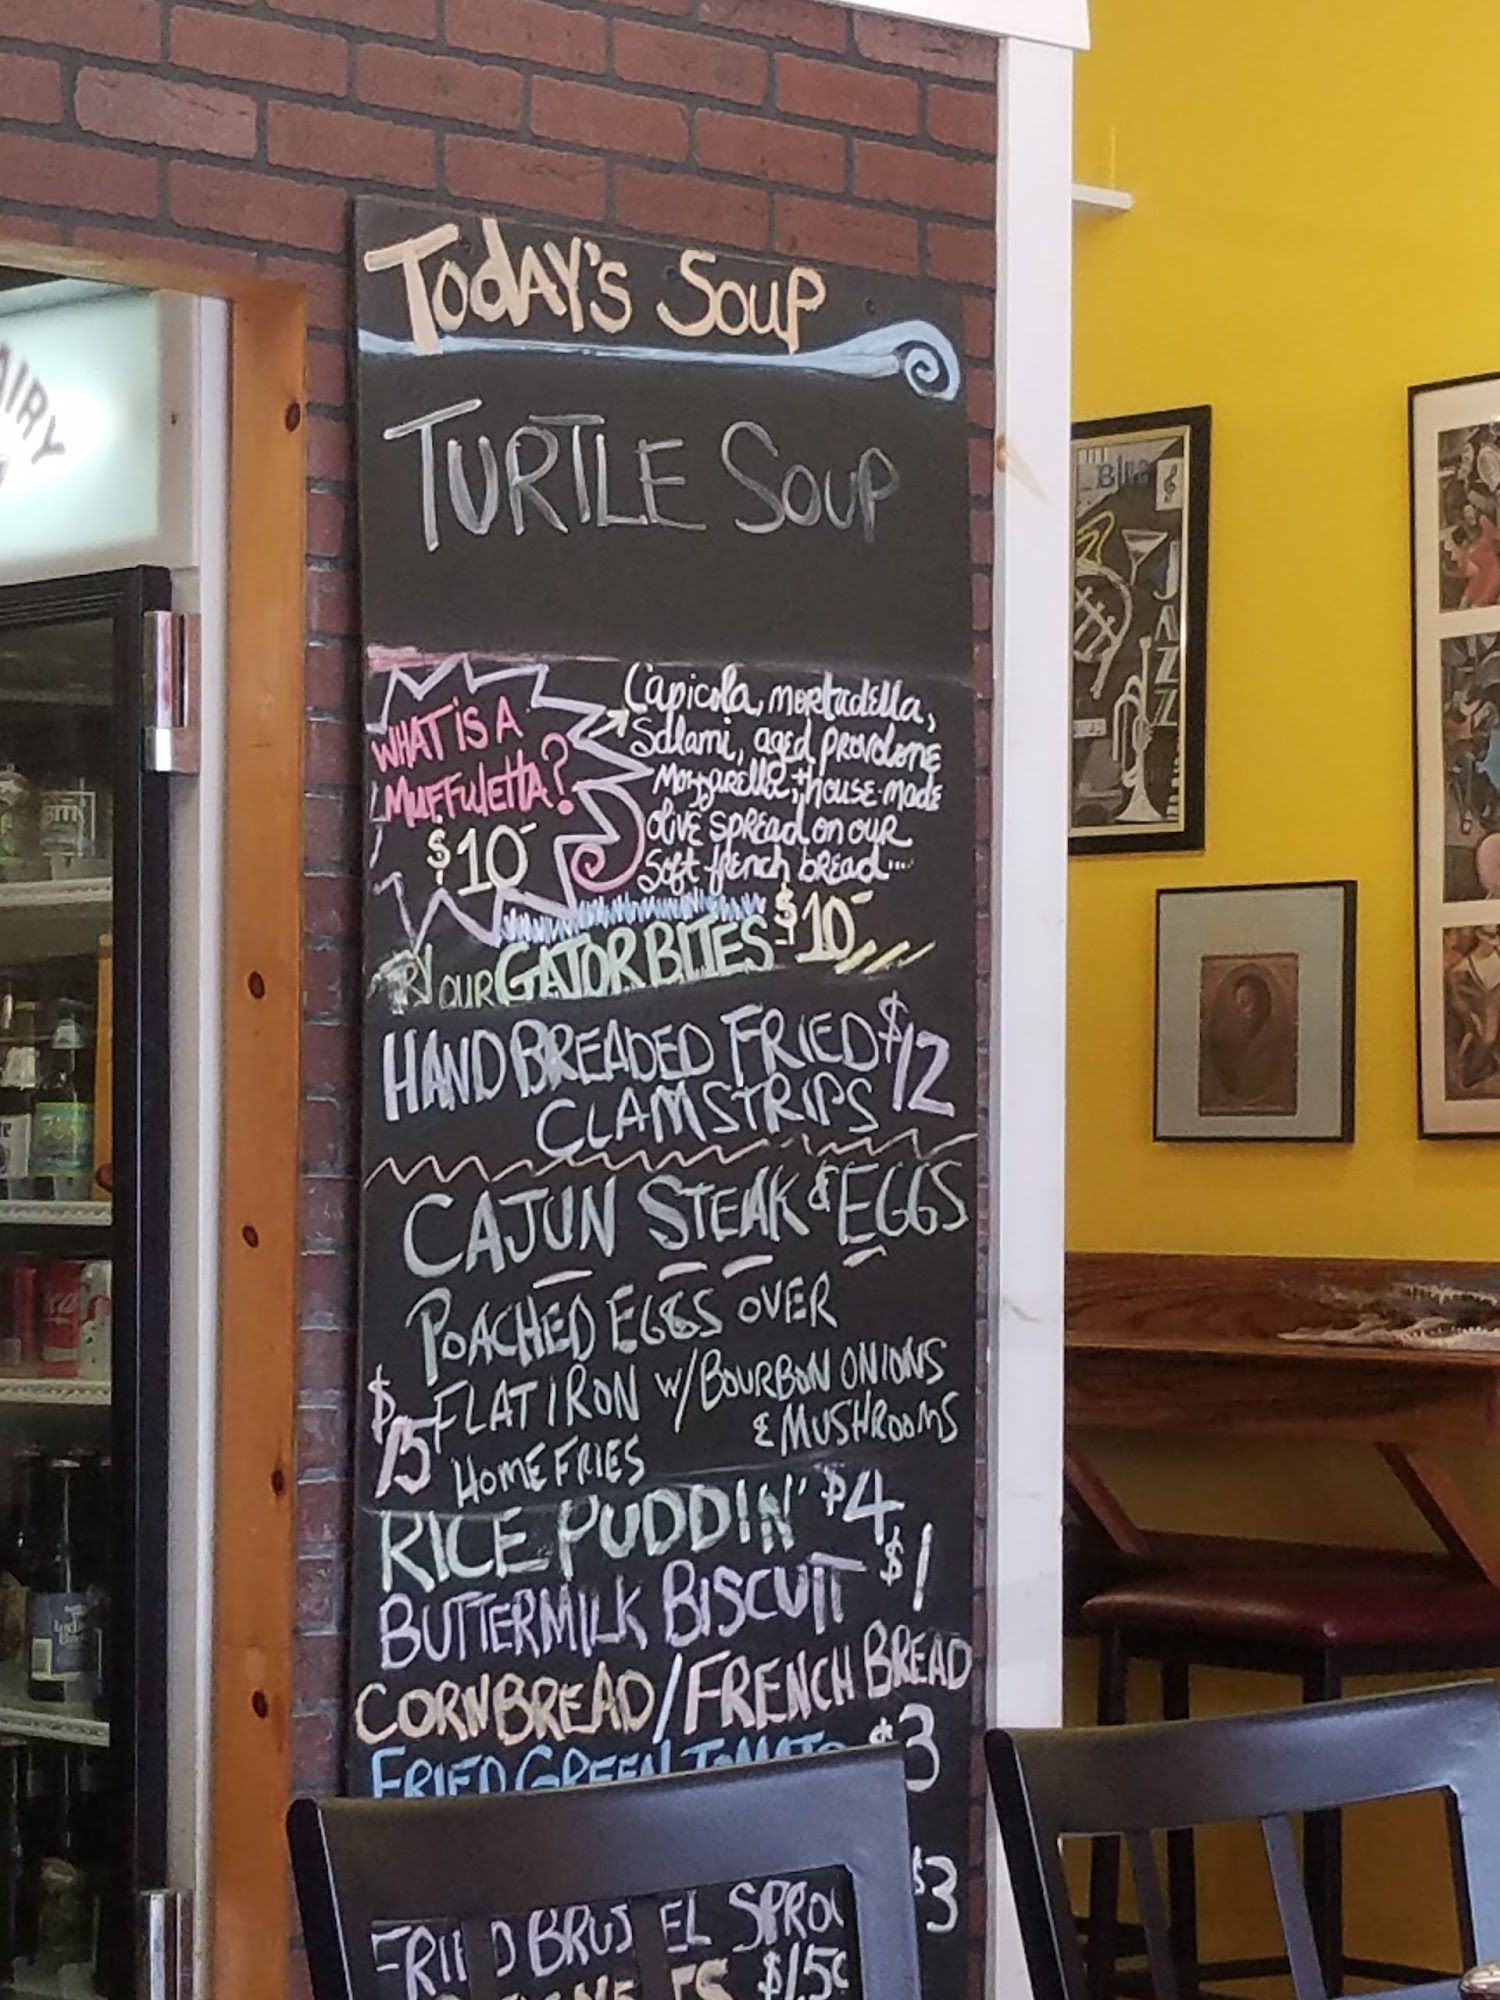 TODAY'S SOUP
TURTLE SOUP
WHAT IS A
MUFFULETTA?
$10-
Capicola, mortadella,
Salami, aged provolone
Mozzarella, + house-made
olive spread on our
Soft french bread....
TRY OUR GATOR BITES $10-
HAND BREADED FRIED $12
CLAM STRIPS
CAJUN STEAK & EGGS
POACHED EGGS OVER
FLAT IRON w/ BOURBON ONIONS
& MUSHROOMS
$15
HOME FRIES
RICE PUDDIN' $4
BUTTERMILK BISCUIT $1
CORNBREAD/FRENCH BREAD
FRIED GREEN $3
$3
BRUS EL SPROU
$1.50
AIRY
BLUES
JAZZ